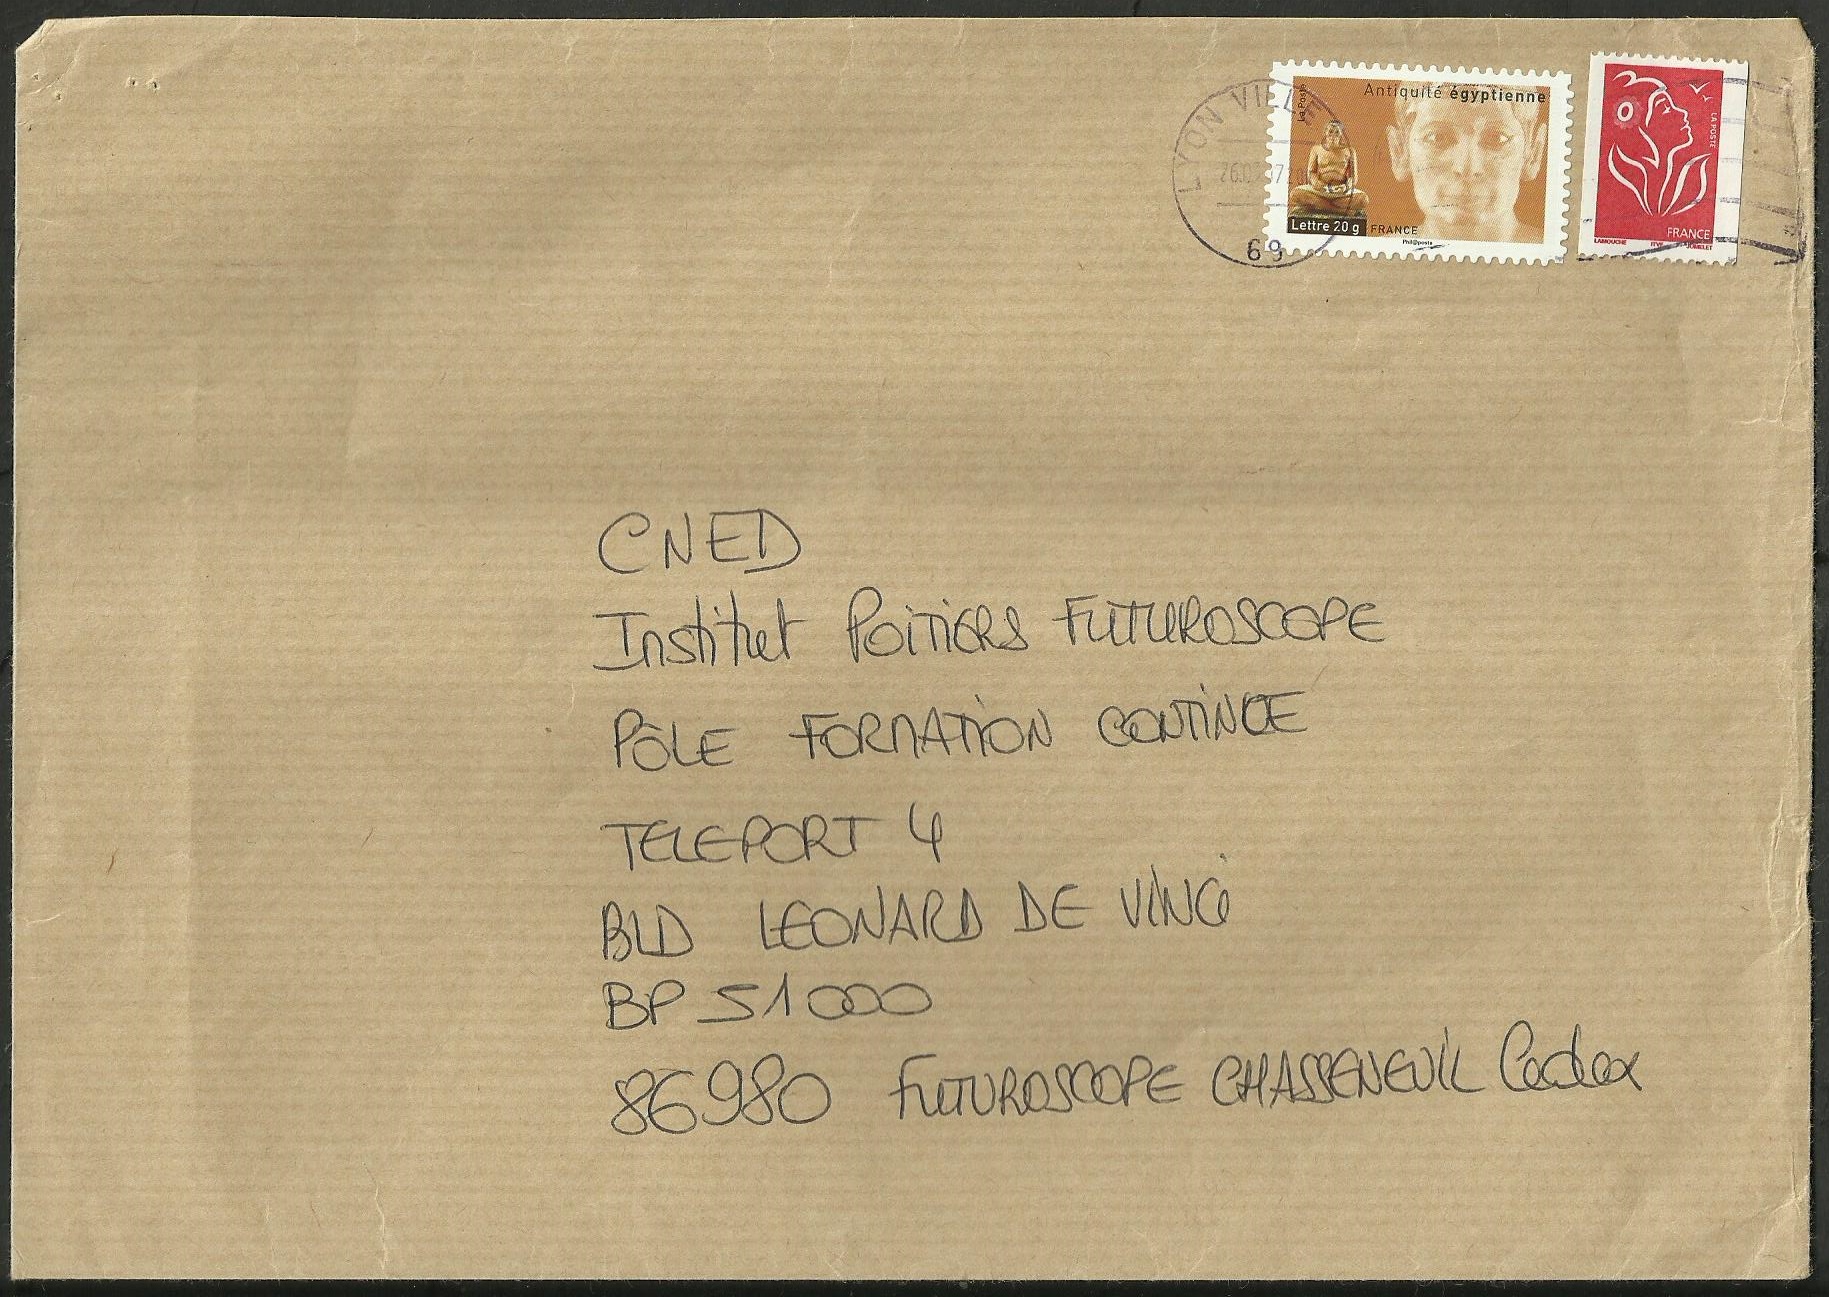 LYON VILLE
69
La Poste
Antiquité égyptienne
Lettre 20 g
FRANCE
Phil@poste
LA POSTE
FRANCE
LAMOUCHE ITVF
CNED
Institut POITIERS FUTUROSCOPE
PÔLE FORMATION CONTINUE
TELEPORT 4
BLD LEONARD DE VINCI
BP S1000
86980 FUTUROSCOPE CHASSENEUIL Cedex